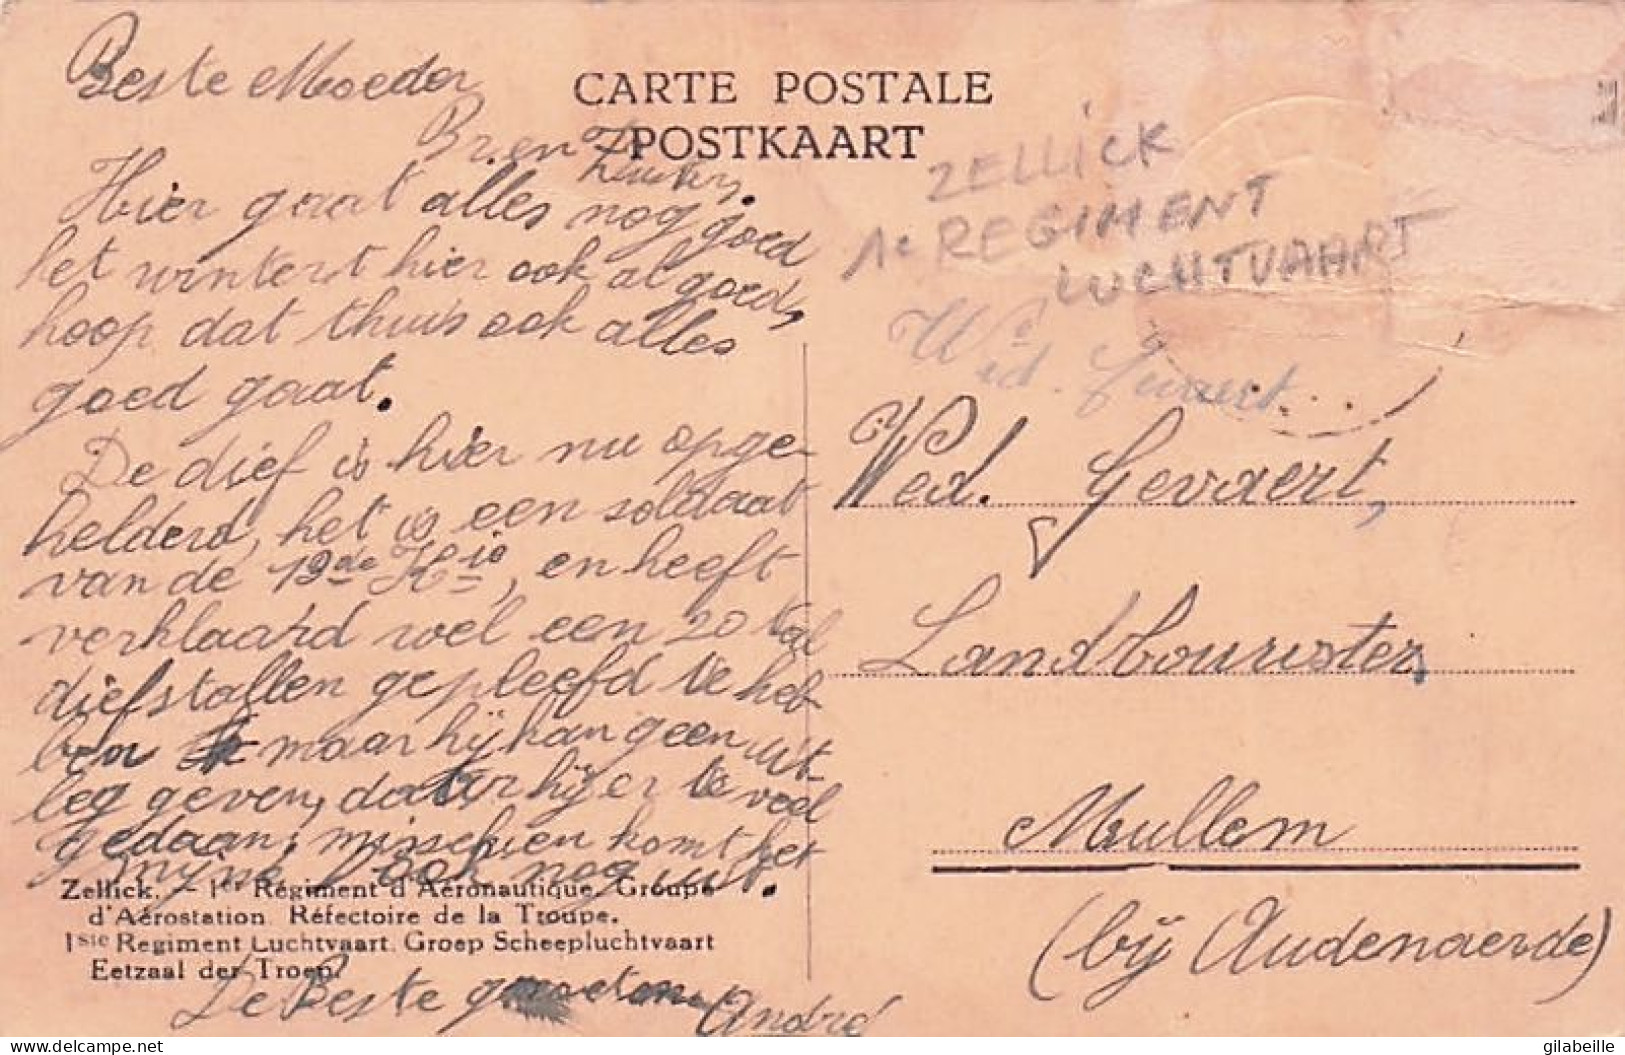 Beste Moeder
Br. en Zusters.
Hier gaat alles nog goed
het wintert hier ook al goed,
hoop dat thuis ook alles
goed gaat.
De dief is hier nu opge-
helderd, het is een soldaat
van de 19de Kie, en heeft
verklaard wel een 20 tal
diefstallen gepleefd te heb-
ben maar hij kan geen uit-
leg geven, dater hij er te veel
gedaan, misschien komt het
mijne ook nog uit.
Zellick. — 1er Régiment d'Aéronautique. Groupe
d'Aérostation. Réfectoire de la Troupe.
1ste Regiment Luchtvaart. Groep Scheepluchtvaart
Eetzaal der Troep.
De Beste groeten André
CARTE POSTALE
POSTKAART
ZELLICK
1e REGIMENT
LUCHTVAART
Wed.
Wed. Gevaert,
Landbouwster,
Mullem
(bij Audenaerde)
gilabeille